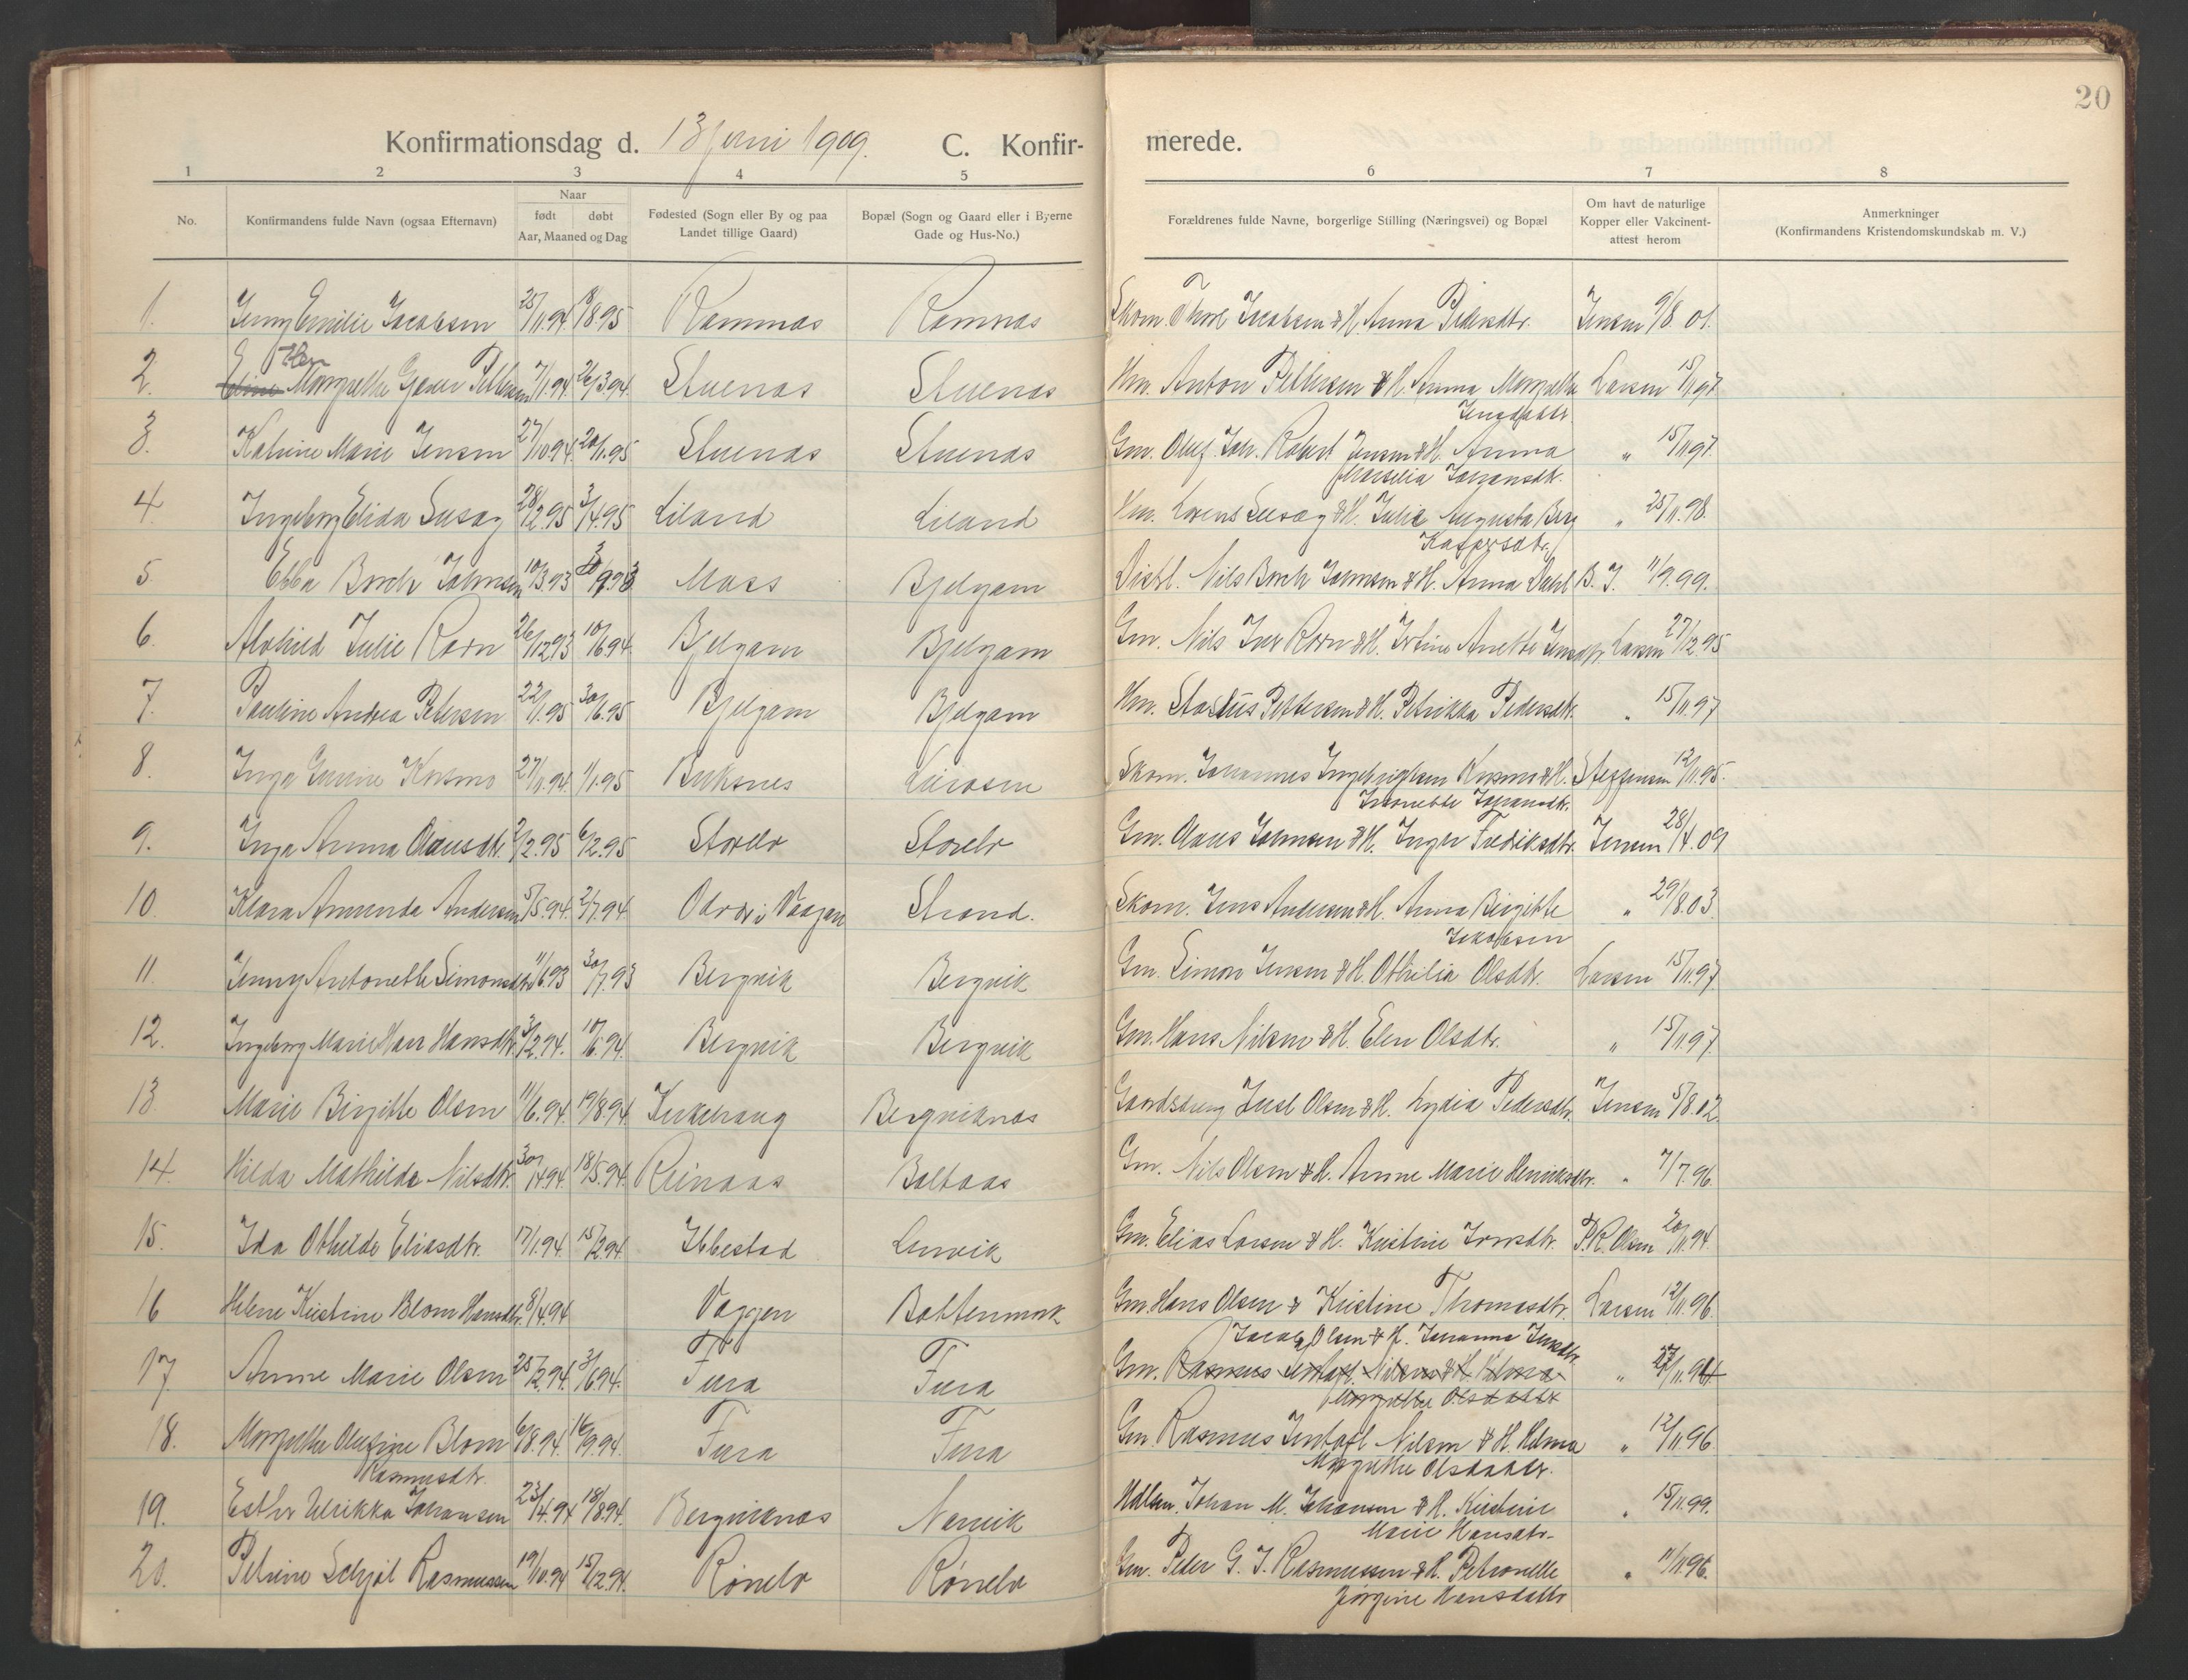 20
Konfirmationsdag d. 13 juni 1909. C. Konfir- merede.
1 2 3 4 5 6 7 8
No.
Konfirmandens fulde Navn (ogsaa Efternavn)
Naar
født døbt
Aar, Maaned og Dag
Fødested (Sogn eller By og paa
Landet tillige Gaard)
Bopæl (Sogn og Gaard eller i Byerne
Gade og Hus-No.)
Forældrenes fulde Navne, borgerlige Stilling (Næringsvei) og Bopæl
Om havt de naturlige
Kopper eller Vakcinent-
attest herom
Anmerkninger
(Konfirmandens Kristendomskundskab m. V.)
1. Jenny Emilie Jacobsen 25/11.94. 18/8.95 Ramnas Ramnas Skom. Thore Jacobsen & H. Anna Pedersdtr. Jensen 9/8 01.
2. Margrethe Pettersen 7/1.94 26/3.94. Stuenas Stuenas Hm. Anton Pettersen & H. Anna Margrethe Larsen 15/11.97
Jensdattr.
3. Katrine Marie Jensen 27/10.94. 20/1.95 Stuenas Stuenas Gm. Oluf Joh. Robert Jensen & H. Anna „ 15/11.97.
Marselia Johansdtr.
4. Ingeborg Elida Susag 28/12.95 3/4.95 Liland Liland Hm. Lorens Susag & H. Julie Augusta Berg „ 25/11.98.
Kaspersdtr.
5. Ebba Borch Johnsen 10/3.93 Moss Bjelgam Distl. Nils Borch Johnsen & H. Anna Dahl B. J. 11/9.99.
6. Alvhild Julie Korn 26/12.93 10/6.94. Bjelgam Bjelgam Gm. Nils Iver Korn & H. Anette Jensdtr. Larsen 27/12.95
7. Pauline Andrea Petersen 22/1.95 30/6.95 Bjelgam Bjelgam Hm. Pettersen & H. Petrikka Pedersdtr. „ 15/11.97
8. Inga Gurine Kosmo 27/11.94. 1/1.95 Buksnes Skom. Johannes Ingebrigtsen Kosmo & H. Steffensen 12/11.95.
Johansdtr.
9. Inga Anna Olausdtr. 2/2.95 6/2.95 Storelv Storelv Gm. Olaus Johnsen & H. Inger Fredriksdtr. Jensen 28/4.09
10. Klara Amanda Andersen 5/5.94. 2/7.94 Vaagan Strand. Skom. Jens Andersen & H. Anna Birgitte „ 29/8.03.
Jakobsen
11. Jenny Antonette Simonsdtr. 11/6.93 30/7.93 Bergvik Bergvik Gm. Simon Jensen & H. Othilia Olsdtr. Larsen 15/11.97.
12. Ingeborg Marie Hansdtr. 3/2.94. 10/6.94. Bergvik Bergvik Gm. Hans Nilsen & H. Elen Olsdtr. „ 15/11.97.
13. Marie Birgitte Olsen 11/6.94. 19/8.94. Kirkehaug Bergviknas Olsen & H. Lydia Pedersdtr. Jensen 5/8.02.
14. Hilda Mathilda Nilsdtr. 30/1.94. 18/5.94. Reinaas Baltaas Gm. Nils Olsen & H. Anne Marie Henriksdtr. „ 7/7.96.
15. Ida Othilde Eliasdtr. 17/1.94. 15/2.94 Ibbestad Lenvik Gm. Elias Larsen & H. Kristine P.R. Olsen 20/11.94.
16 Helene Kristine Blom Hansdtr. 8/4.94 Vaggen Bottenmark Gm. Hans Olsen & Kristine Thomasdtr. Larsen 12/11.96.
Jacob Olsen & H. Johanna Jensdtr.
17. Anne Marie Olsen 25/2.94. 3/6.94. Fura Fura Gm. Rasmus Nilsen & H. Hilma „
Margrethe Olsdattr
18. Margrethe Olufine Blom 6/8.94. 16/9.94. Fura Fura Gm. Rasmus Nilsen & H. Hilma „ 12/11.96
Rasmusdtr. Margrethe Olsdattr.
19. Esther Ulrikka Johansen 23/4.94 18/8.94. Bergviknas Narvik Hdlsm. Johan M. Johansen & H. Kristine „ 15/11.99.
Marie Hansdtr.
20. Petrine Schjøl Rasmussen 19/10.94 15/12.94. Rønelv Rønelv Gm. Peder G. J. Rasmussen & H. Petronelle „ 11/11.96.
Jørgine Hansdattr